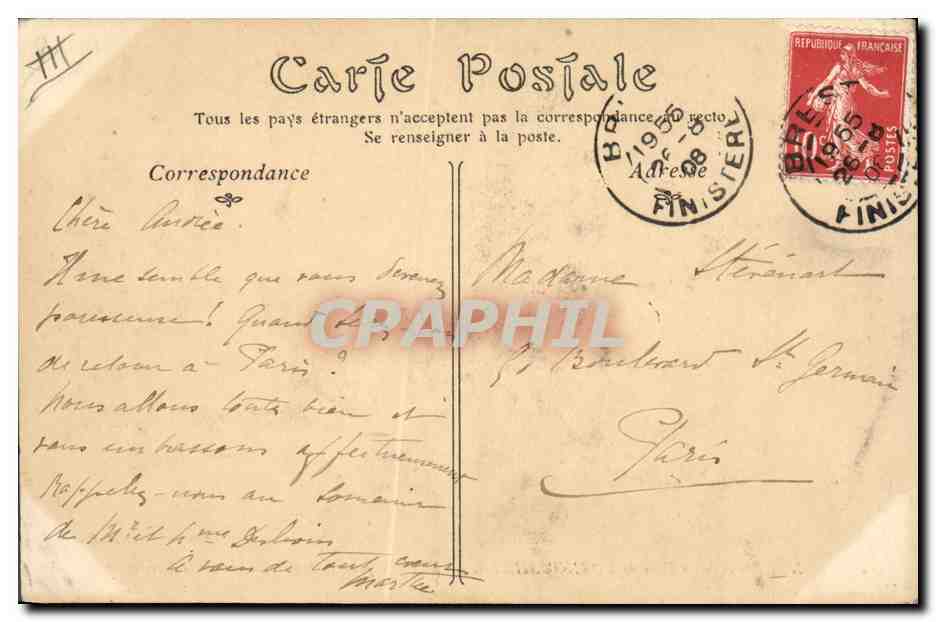 Carte Postale
Tous les pays étrangers n'acceptent pas la correspondance au recto.
Se renseigner à la poste.
Correspondance
Adresse
REPUBLIQUE FRANÇAISE
POSTES
19 55
26-8
08
FINISTERE
BREST
19 55
26-8
FINIS
Chère Andrée.
Il me semble que vous devenez
paresseuse! Quand
de retour à Paris?
Nous allons toutes bien et
vous embrassons affectueusement
Rappelez-nous au
de Mr et Mme
à vous de tout cœur
Marthe
Madame Sténart
Boulevard St Germain
Paris
CPAPHIL